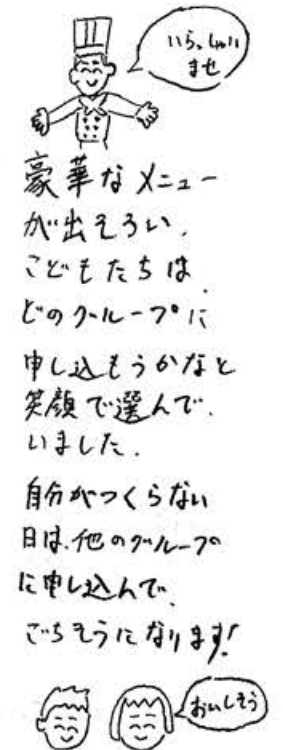 いらっしゃい
ませ
豪華なメニュー
が出そろい、
こどもたちは、
どのグループに
申し込もうかなと
笑顔で選んで、
いました。
自分がつくらない
日は、他のグループ
に申し込んで、
ごちそうになります!
おいしそう